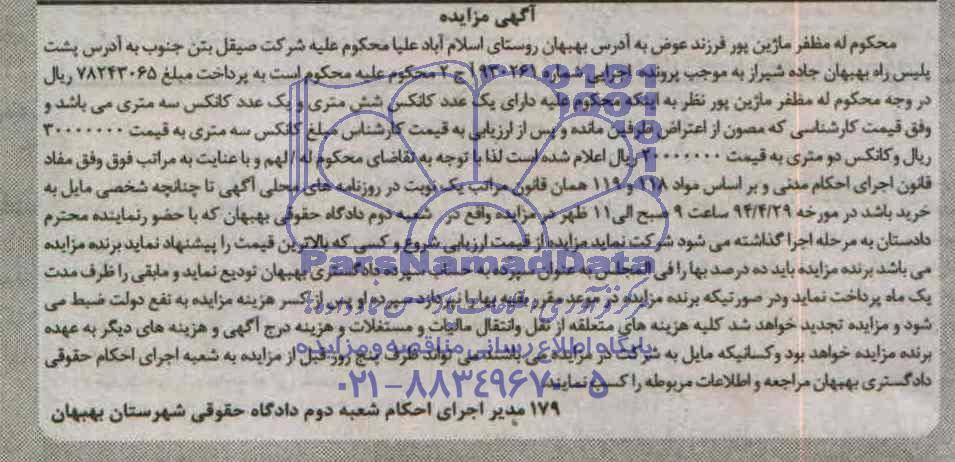 آگهی مزایده
محکوم له مظفر ماژین پور فرزند عوض به آدرس بهبهان روستای اسلام آباد علیا محکوم علیه شرکت صیقل بتن جنوب به آدرس پشت
پلیس راه بهبهان جاده شیراز به موجب پرونده اجرایی شماره ۹۳۰۲۶۱ ج ۲ محکوم علیه محکوم است به پرداخت مبلغ ۷۸۲۴۳۰۶۵ ریال
در وجه محکوم له مظفر ماژین پور نظر به اینکه محکوم علیه دارای یک عدد کانکس شش متری و یک عدد کانکس سه متری می باشد و
وفق قیمت کارشناسی که مصون از اعتراض طرفین مانده و پس از ارزیابی به قیمت کارشناس مبلغ کانکس سه متری به قیمت ۳۰۰۰۰۰۰۰
ریال وکانکس دو متری به قیمت ۲۰۰۰۰۰۰۰ ریال اعلام شده است لذا با توجه به تقاضای محکوم له / لهم و با عنایت به مراتب فوق وفق مفاد
قانون اجرای احکام مدنی و بر اساس مواد ۱۱۸ و ۱۱۹ همان قانون مراتب یک نوبت در روزنامه های محلی آگهی تا چنانچه شخصی مایل به
خرید باشد در مورخه ۹۴/۴/۲۹ ساعت ۹ صبح الی۱۱ ظهر در مزایده واقع در شعبه دوم دادگاه حقوقی بهبهان که با حضو رنماینده محترم
دادستان به مرحله اجرا گذاشته می شود شرکت نماید مزایده از قیمت ارزیابی شروع و کسی که بالاترین قیمت را پیشنهاد نماید برنده مزایده
می باشد برنده مزایده باید ده درصد بها را فی المجلس به عنوان سپرده به حساب سپرده دادگستری بهبهان تودیع نماید و مابقی را ظرف مدت
یک ماه پرداخت نماید ودر صورتیکه برنده مزایده در موعد مقرر بقیه بها را نپردازد سپرده او پس از کسر هزینه مزایده به نفع دولت ضبط می
شود و مزایده تجدید خواهد شد کلیه هزینه های متعلقه از نقل وانتقال مالیات و مستغلات و هزینه درج آگهی و هزینه های دیگر به عهده
برنده مزایده خواهد بود وکسانیکه مایل به شرکت در مزایده می باشند می تواند ظرف پنج روز قبل از مزایده به شعبه اجرای احکام حقوقی
دادگستری بهبهان مراجعه و اطلاعات مربوطه را کسب نمایند
۱۷۹ مدیر اجرای احکام شعبه دوم دادگاه حقوقی شهرستان بهبهان
ParsNamadData
پایگاه اطلاع رسانی مناقصه و مزایده
۰۲۱-۸۸۳۴۹۶۷۰-۵